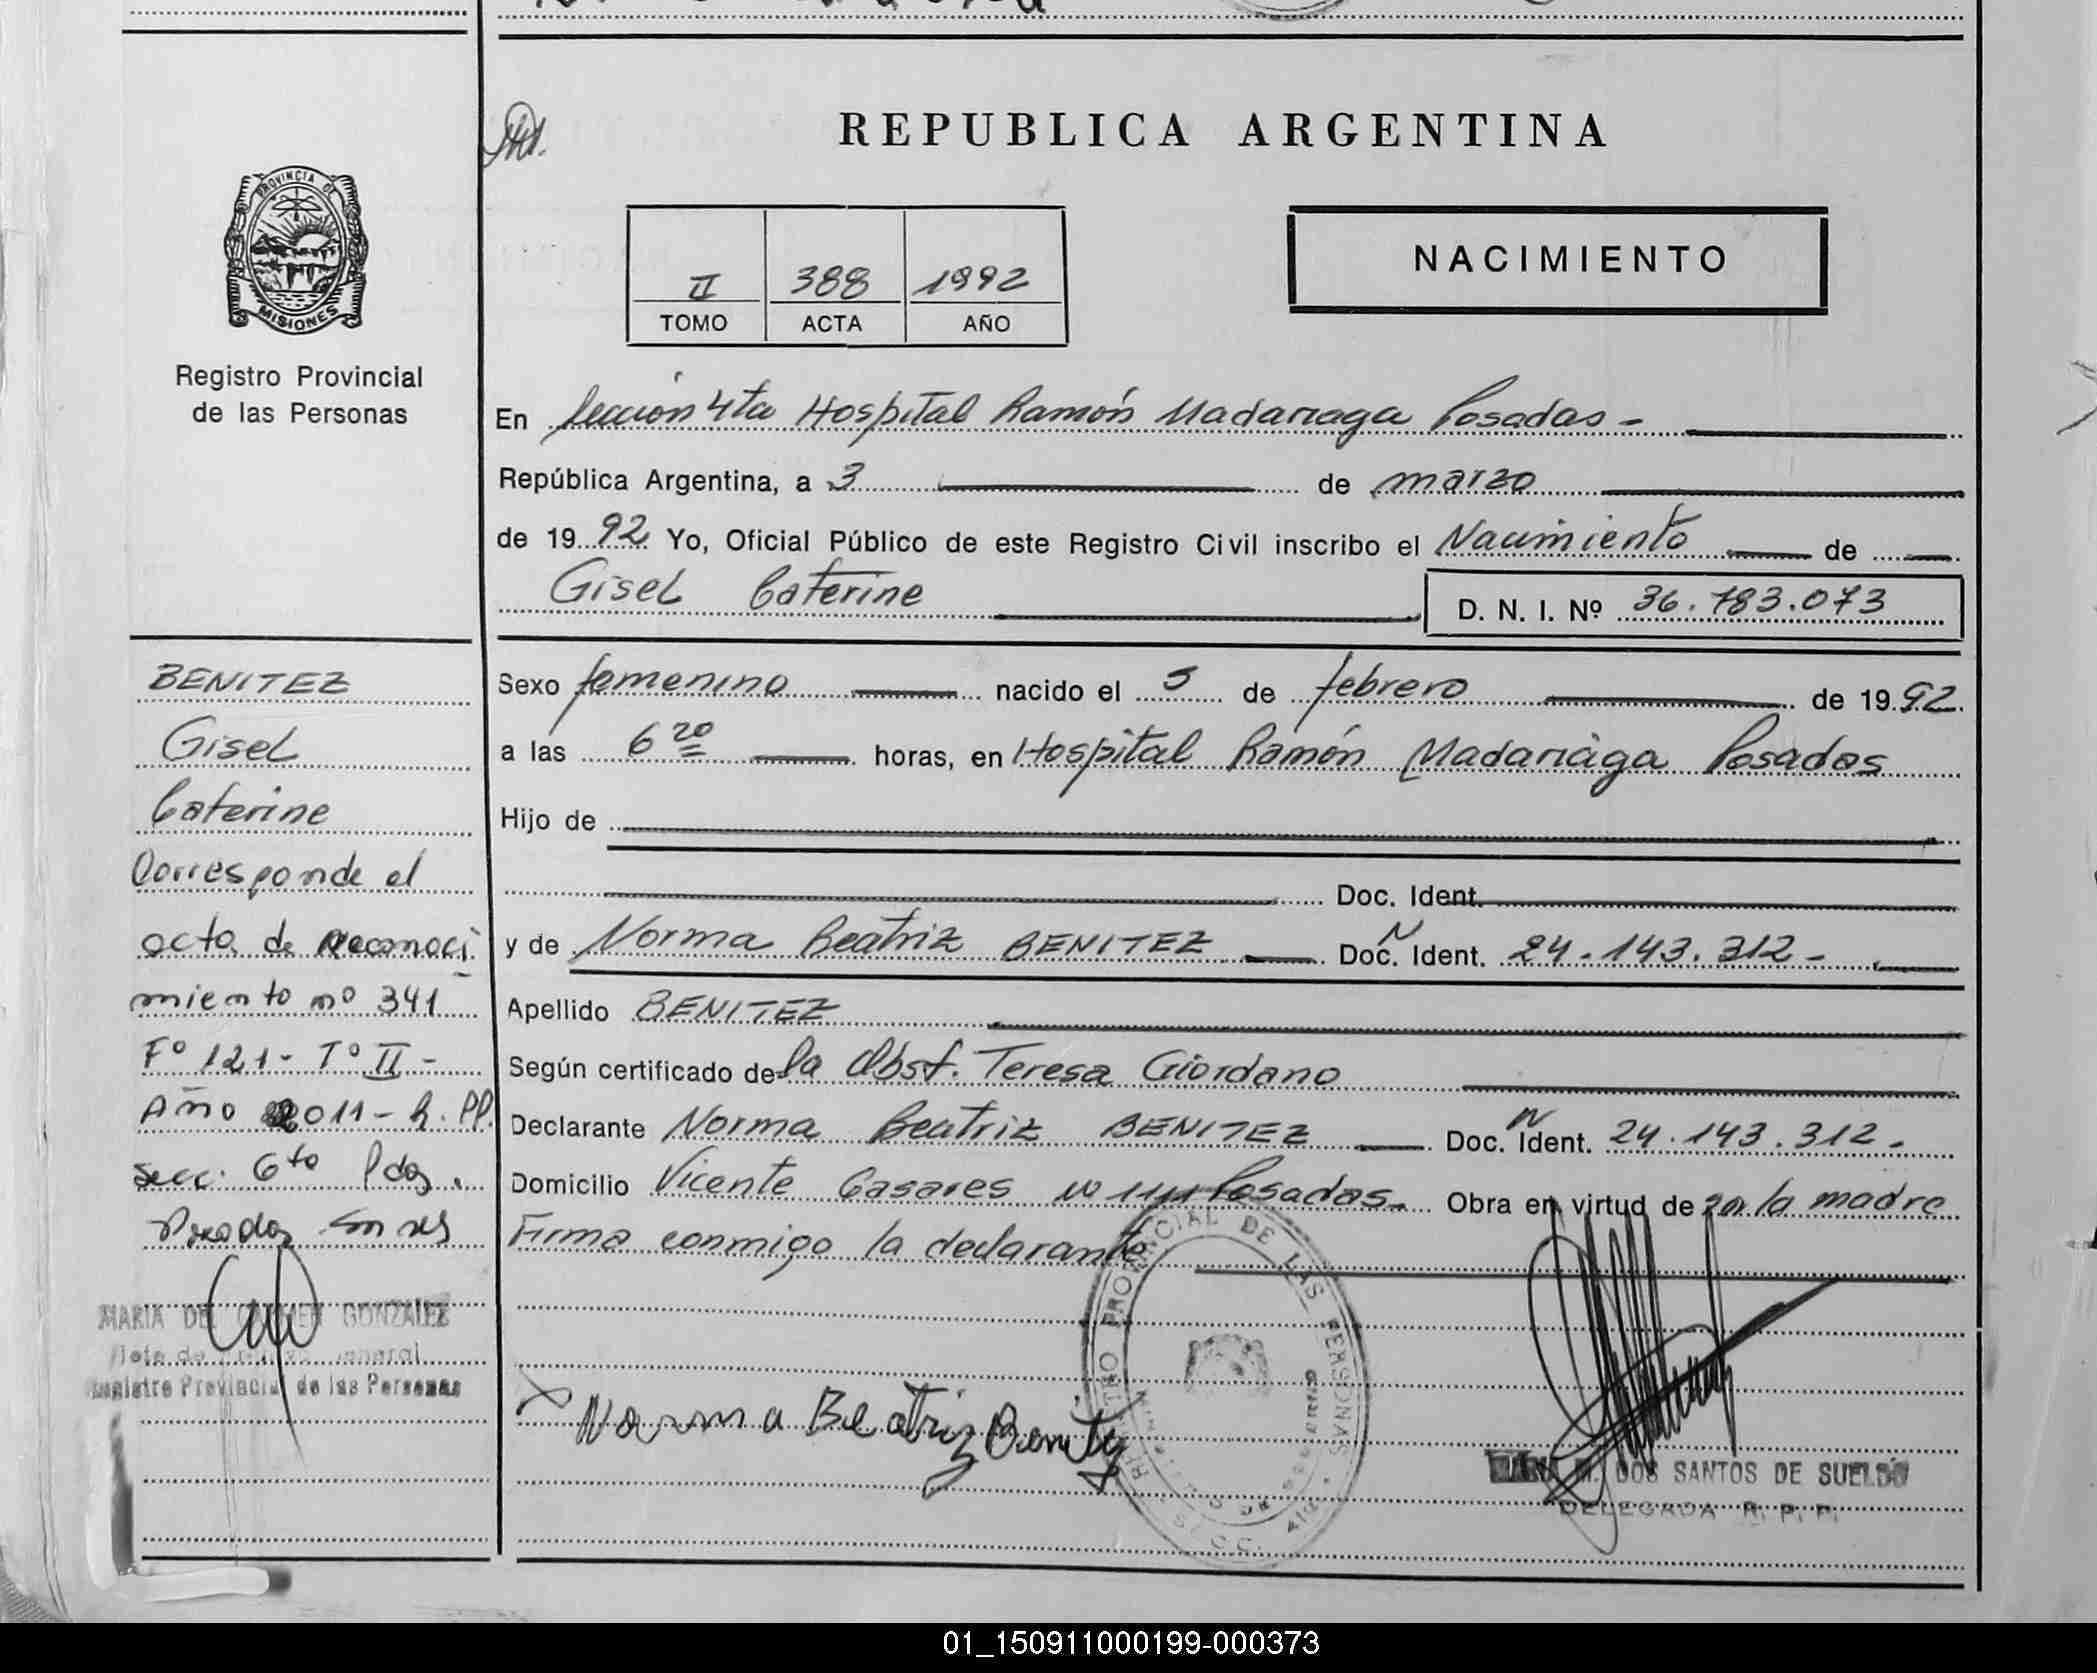 REPUBLICA ARGENTINA
PROVINCIA DE
MISIONES
Registro Provincial
de las Personas
II 388 1992
TOMO ACTA AÑO
NACIMIENTO
En Sección 4ta Hospital Ramón Madariaga Posadas -
República Argentina, a 3 de marzo
de 1992 Yo, Oficial Público de este Registro Civil inscribo el Nacimiento de
Gisel Caterine D. N. I. Nº 36.783.073
Sexo femenino nacido el 5 de febrero de 1992.
a las 6 20 horas, en Hospital Ramón Madariaga Posadas
Hijo de
Doc. Ident.
y de Norma Beatriz BENITEZ Doc. N Ident. 24.143.312.-
Apellido BENITEZ
Según certificado de la Obst. Teresa Giordano
Declarante Norma Beatriz BENITEZ Doc. N Ident. 24.143.312.
Domicilio Vicente Casares Posadas. Obra en virtud de la madre
Firma conmigo la declarante
Norma Beatriz Benitez
REGISTRO PROVINCIAL DE LAS PERSONAS
M. DOS SANTOS DE SUELDO
DELEGADA R. P. P.
BENITEZ
Gisel
Caterine
Corresponde el
acta de reconoci
miento nº 341
Fº 121- Tº II -
Año 2011 - R. PP.
Secc. 6to Pdas.
MARIA DEL CARMEN GONZALEZ
Jefa de Archivo General
Registro Provincial de las Personas
01_150911000199-000373